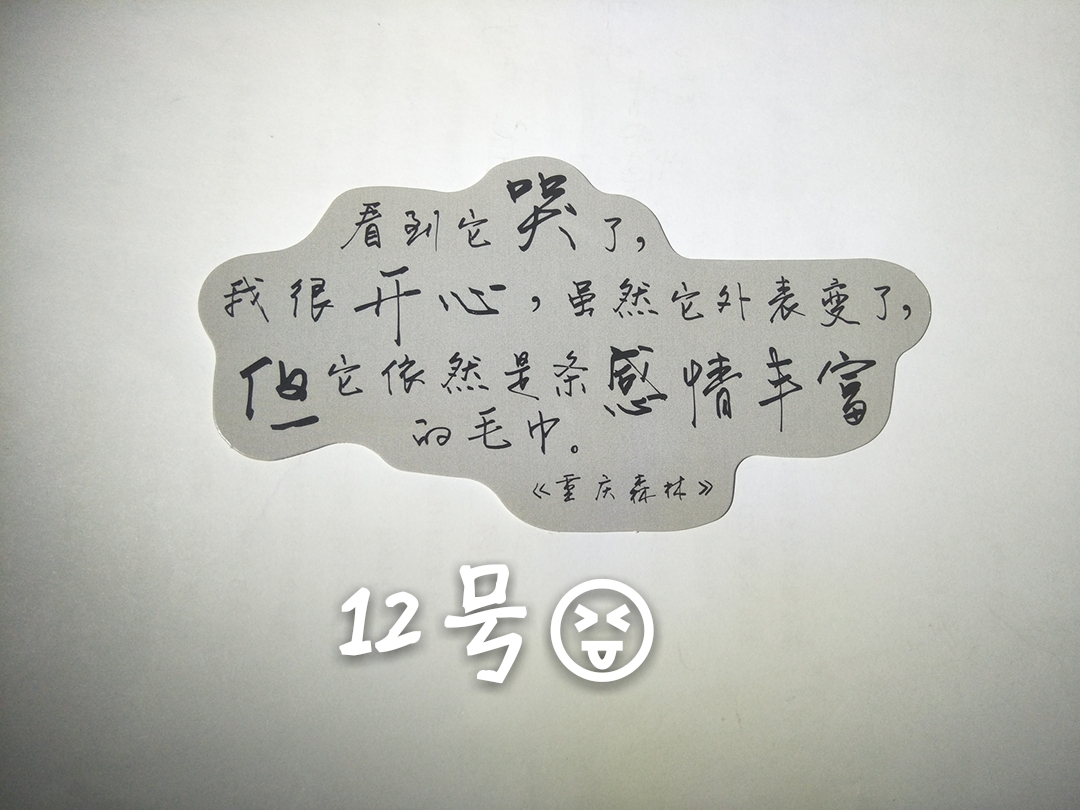 看到它哭了，
我很开心，虽然它外表变了，
但它依然是条感情丰富
的毛巾。
《重庆森林》
12号